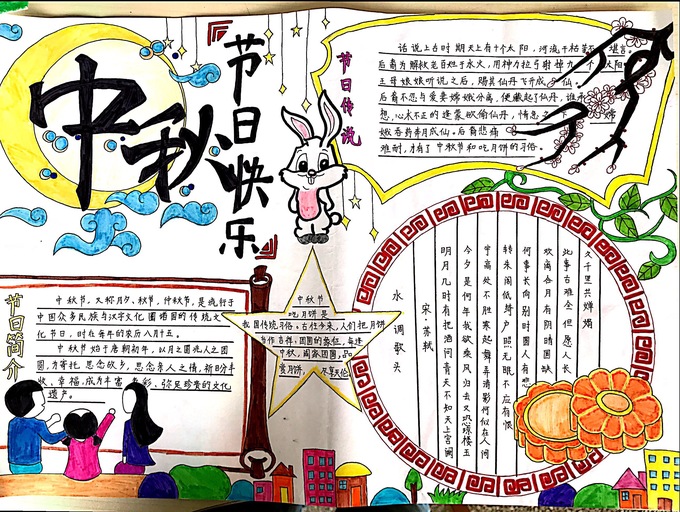 中秋
节日快乐
节日传说
话说上古时期天上有十个太阳,河流干枯苦
堪言。
后羿为解救老百姓于水火,用神力拉弓射掉九个太阳
王母娘娘听说之后,赐其仙丹飞升成仙。
后羿不忍与爱妻嫦娥分离,便藏起了仙丹,谁
想,心术不正的逢蒙欲偷仙丹,情急之下
嫦
娥吞药奔月成仙。后羿悲痛
难耐,才有了中秋节和吃月饼的习俗。
节日简介
中秋节,又称月夕、秋节,仲秋节,是流行于
中国众多民族与汉字文化圈诸国的传统文
化节日,时在每年的农历八月十五。
中秋节始于唐朝初年,以月之圆兆人之团
圆,为寄托思念故乡,思念亲人之情,祈盼丰
收、幸福,成为丰富多彩、弥足珍贵的文化
遗产。
中秋节
吃月饼是
我国传统习俗。古往今来,人们把月饼
当作吉祥、团圆的象征。每逢
中秋,阖家团圆,品
赏月饼,
尽享天伦
水调歌头
宋·苏轼
明月几时有把酒问青天不知天上宫阙
今夕是何年我欲乘风归去又恐琼楼玉
宇高处不胜寒起舞弄清影何似在人间
转朱阁低绮户照无眠不应有恨
何事长向别时圆人有悲
欢离合月有阴晴圆缺
此事古难全但愿人长
久千里共婵娟